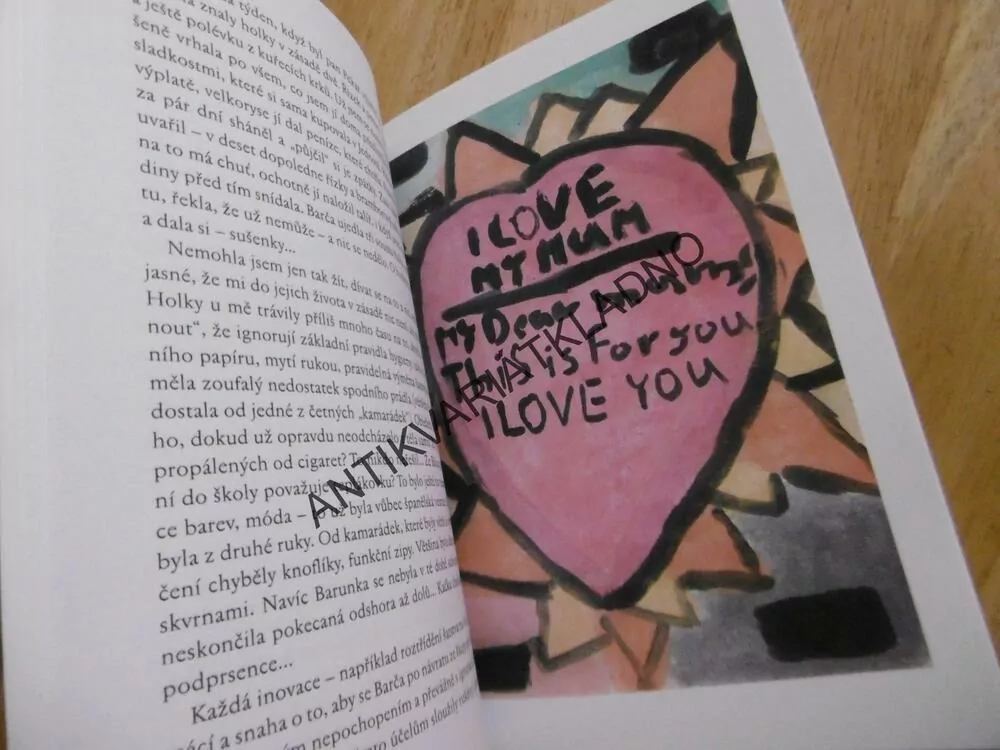 týden, když byl pan
znaly holky v zásadě dvě. Řízek
a ještě polévku z kuřecích krků. Už
šeně vrhala po všem, co jsem jí doma
sladkostmi, které si sama kupovala v
výplatě, velkoryse jí dal peníze, které
za pár dní sháněl a „půjčil“ si je zpátky.
uvařil – v deset dopoledne řízky a bramborový
na to má chuť, ochotně jí naložil talíř, i když
diny před tím snídala. Barča ujedla tři sousta
tu, řekla, že už nemůže – a nic se nedělo. O
a dala si – sušenky...
Nemohla jsem jen tak žít, dívat se na to a
jasné, že mi do jejich života v zásadě nic není,
Holky u mě trávily příliš mnoho času na to,
nout“, že ignorují základní pravidla hygieny
ního papíru, mytí rukou, pravidelná výměna
měla zoufalý nedostatek spodního prádla
dostala od jedné z četných „kamarádek“.
ho, dokud už opravdu neodcházelo z těla
propálených od cigaret?
ní do školy považuje To bylo
ce barev, móda – to už byla vůbec španělská
byla z druhé ruky. Od kamarádek, které byly
čení chyběly knoflíky, funkční zipy. Většina
skvrnami. Navíc Barunka se nebyla v té době
neskončila pokecaná odshora až dolů...
podprsence...
Každá inovace – například roztřídění
a snaha o to, aby se Barča po návratu ze školy
nepochopením a převážně s
účelům sloužily
I LOVE
MY MUM
MY Dear
This is For you
I LOVE YOU
ANTIKVARIÁT KLADNO